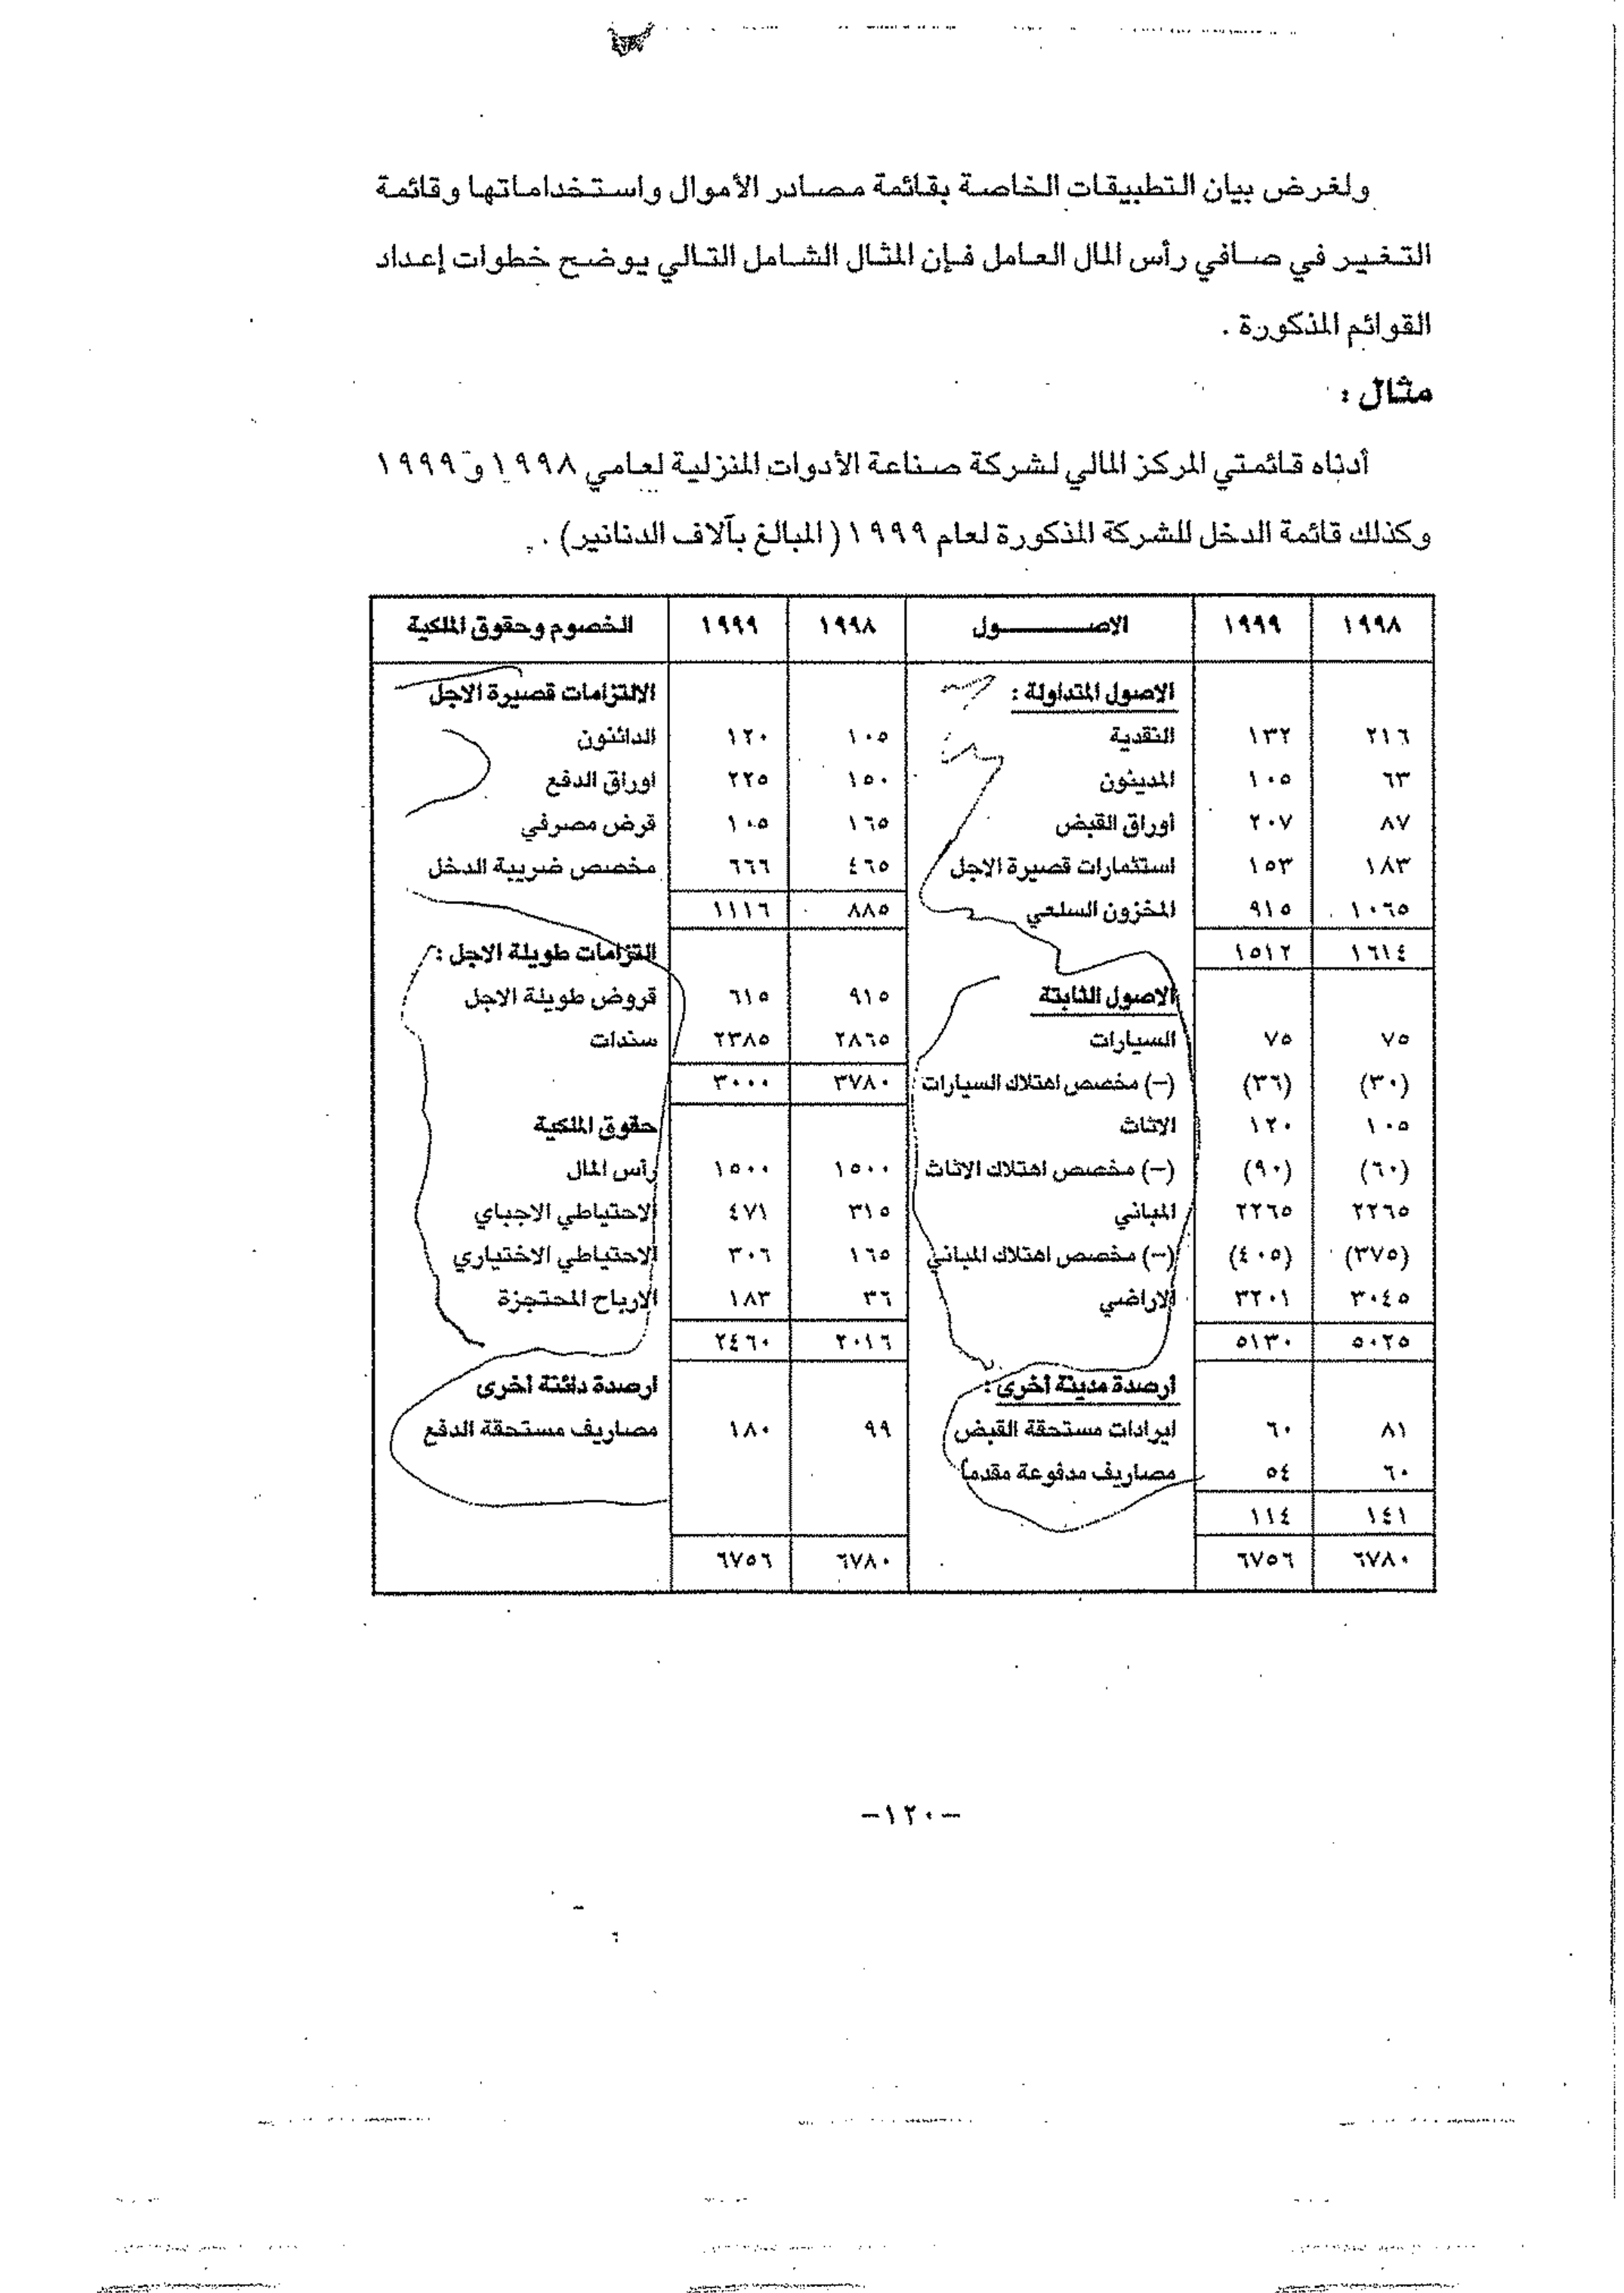 ولغرض بيان التطبيقات الخاصة بقائمة مصادر الأموال واستخداماتها وقائمة
التغير في صافي رأس المال العامل فإن المثال الشامل التالي يوضح خطوات إعداد
القوائم المذكورة .
مثال :
أدناه قائمتي المركز المالي لشركة صناعة الأدوات المنزلية لعامي ١٩٩٨ و ١٩٩٩
وكذلك قائمة الدخل للشركة المذكورة لعام ١٩٩٩ (المبالغ بآلاف الدنانير) .
١٩٩٨ ١٩٩٩ الاصـــــــول ١٩٩٨ ١٩٩٩ الخصوم وحقوق الملكية
الاصول المتداولة : الالتزامات قصيرة الاجل
٢١٦ ١٣٢ النقدية ١٠٥ ١٢٠ الدائنون
٦٣ ١٠٥ المدينون ١٥٠ ٢٢٥ اوراق الدفع
٨٧ ٢٠٧ أوراق القبض ١٦٥ ١٠٥ قرض مصرفي
١٨٣ ١٥٣ استثمارات قصيرة الاجل ٤٦٥ ٦٦٦ مخصص ضريبة الدخل
١٠٦٥ ٩١٥ المخزون السلعي ٨٨٥ ١١١٦
١٦١٤ ١٥١٢ التزامات طويلة الاجل :
الاصول الثابتة ٩١٥ ٦١٥ قروض طويلة الاجل
٧٥ ٧٥ السيارات ٢٨٦٥ ٢٣٨٥ سندات
(٣٠) (٣٦) (–) مخصص اهتلاك السيارات ٣٧٨٠ ٣٠٠٠
١٠٥ ١٢٠ الاثاث حقوق الملكية
(٦٠) (٩٠) (–) مخصص اهتلاك الاثاث ١٥٠٠ ١٥٠٠ رأس المال
٢٢٦٥ ٢٢٦٥ المباني ٣١٥ ٤٧١ الاحتياطي الاجباي
(٣٧٥) (٤٠٥) (–) مخصص اهتلاك المباني ١٦٥ ٣٠٦ الاحتياطي الاختياري
٣٠٤٥ ٣٢٠١ الاراضي ٣٦ ١٨٣ الارباح المحتجزة
٥٠٢٥ ٥١٣٠ ٢٠١٦ ٢٤٦٠
ارصدة مدينة أخرى : ارصدة دائنة أخرى
٨١ ٦٠ ايرادات مستحقة القبض ٩٩ ١٨٠ مصاريف مستحقة الدفع
٦٠ ٥٤ مصاريف مدفوعة مقدماً
١٤١ ١١٤
٦٧٨٠ ٦٧٥٦ ٦٧٨٠ ٦٧٥٦
–١٢٠–